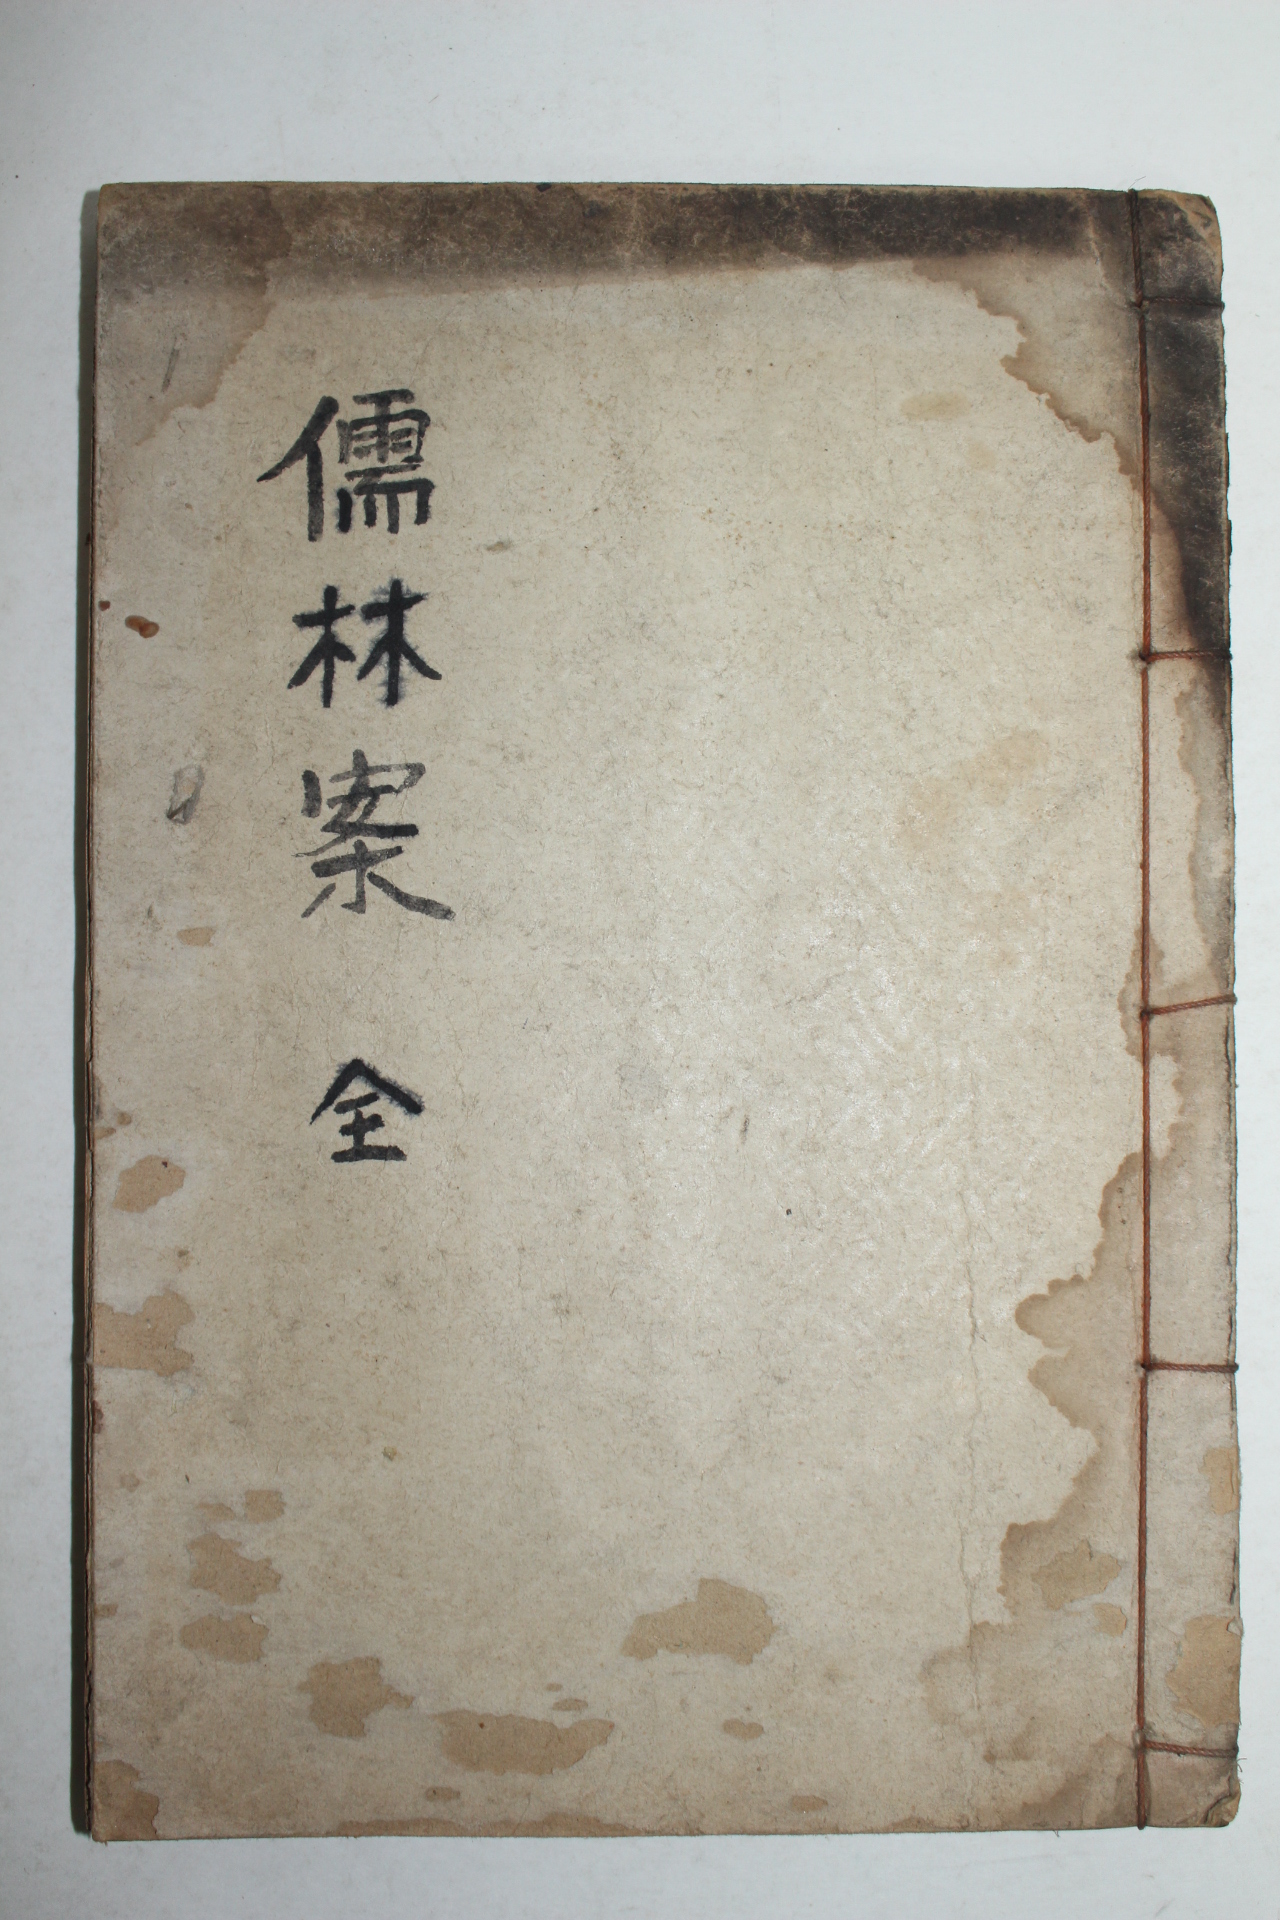 儒林案 全